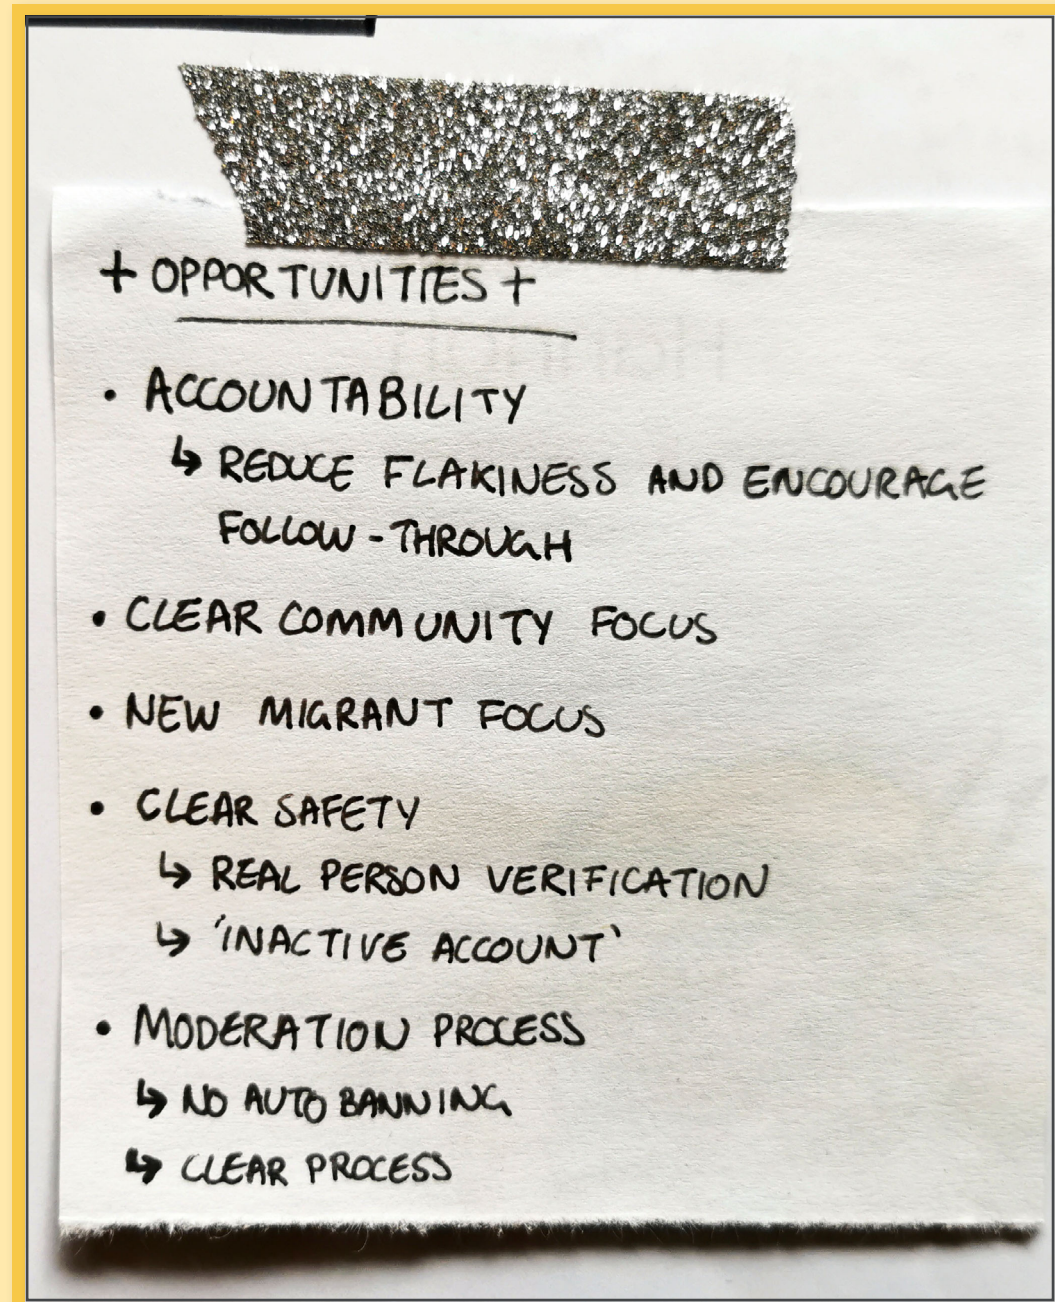 + OPPORTUNITIES +
• ACCOUNTABILITY
↳ REDUCE FLAKINESS AND ENCOURAGE
FOLLOW-THROUGH
• CLEAR COMMUNITY FOCUS
• NEW MIGRANT FOCUS
• CLEAR SAFETY
↳ REAL PERSON VERIFICATION
↳ 'INACTIVE ACCOUNT'
• MODERATION PROCESS
↳ NO AUTO BANNING
↳ CLEAR PROCESS